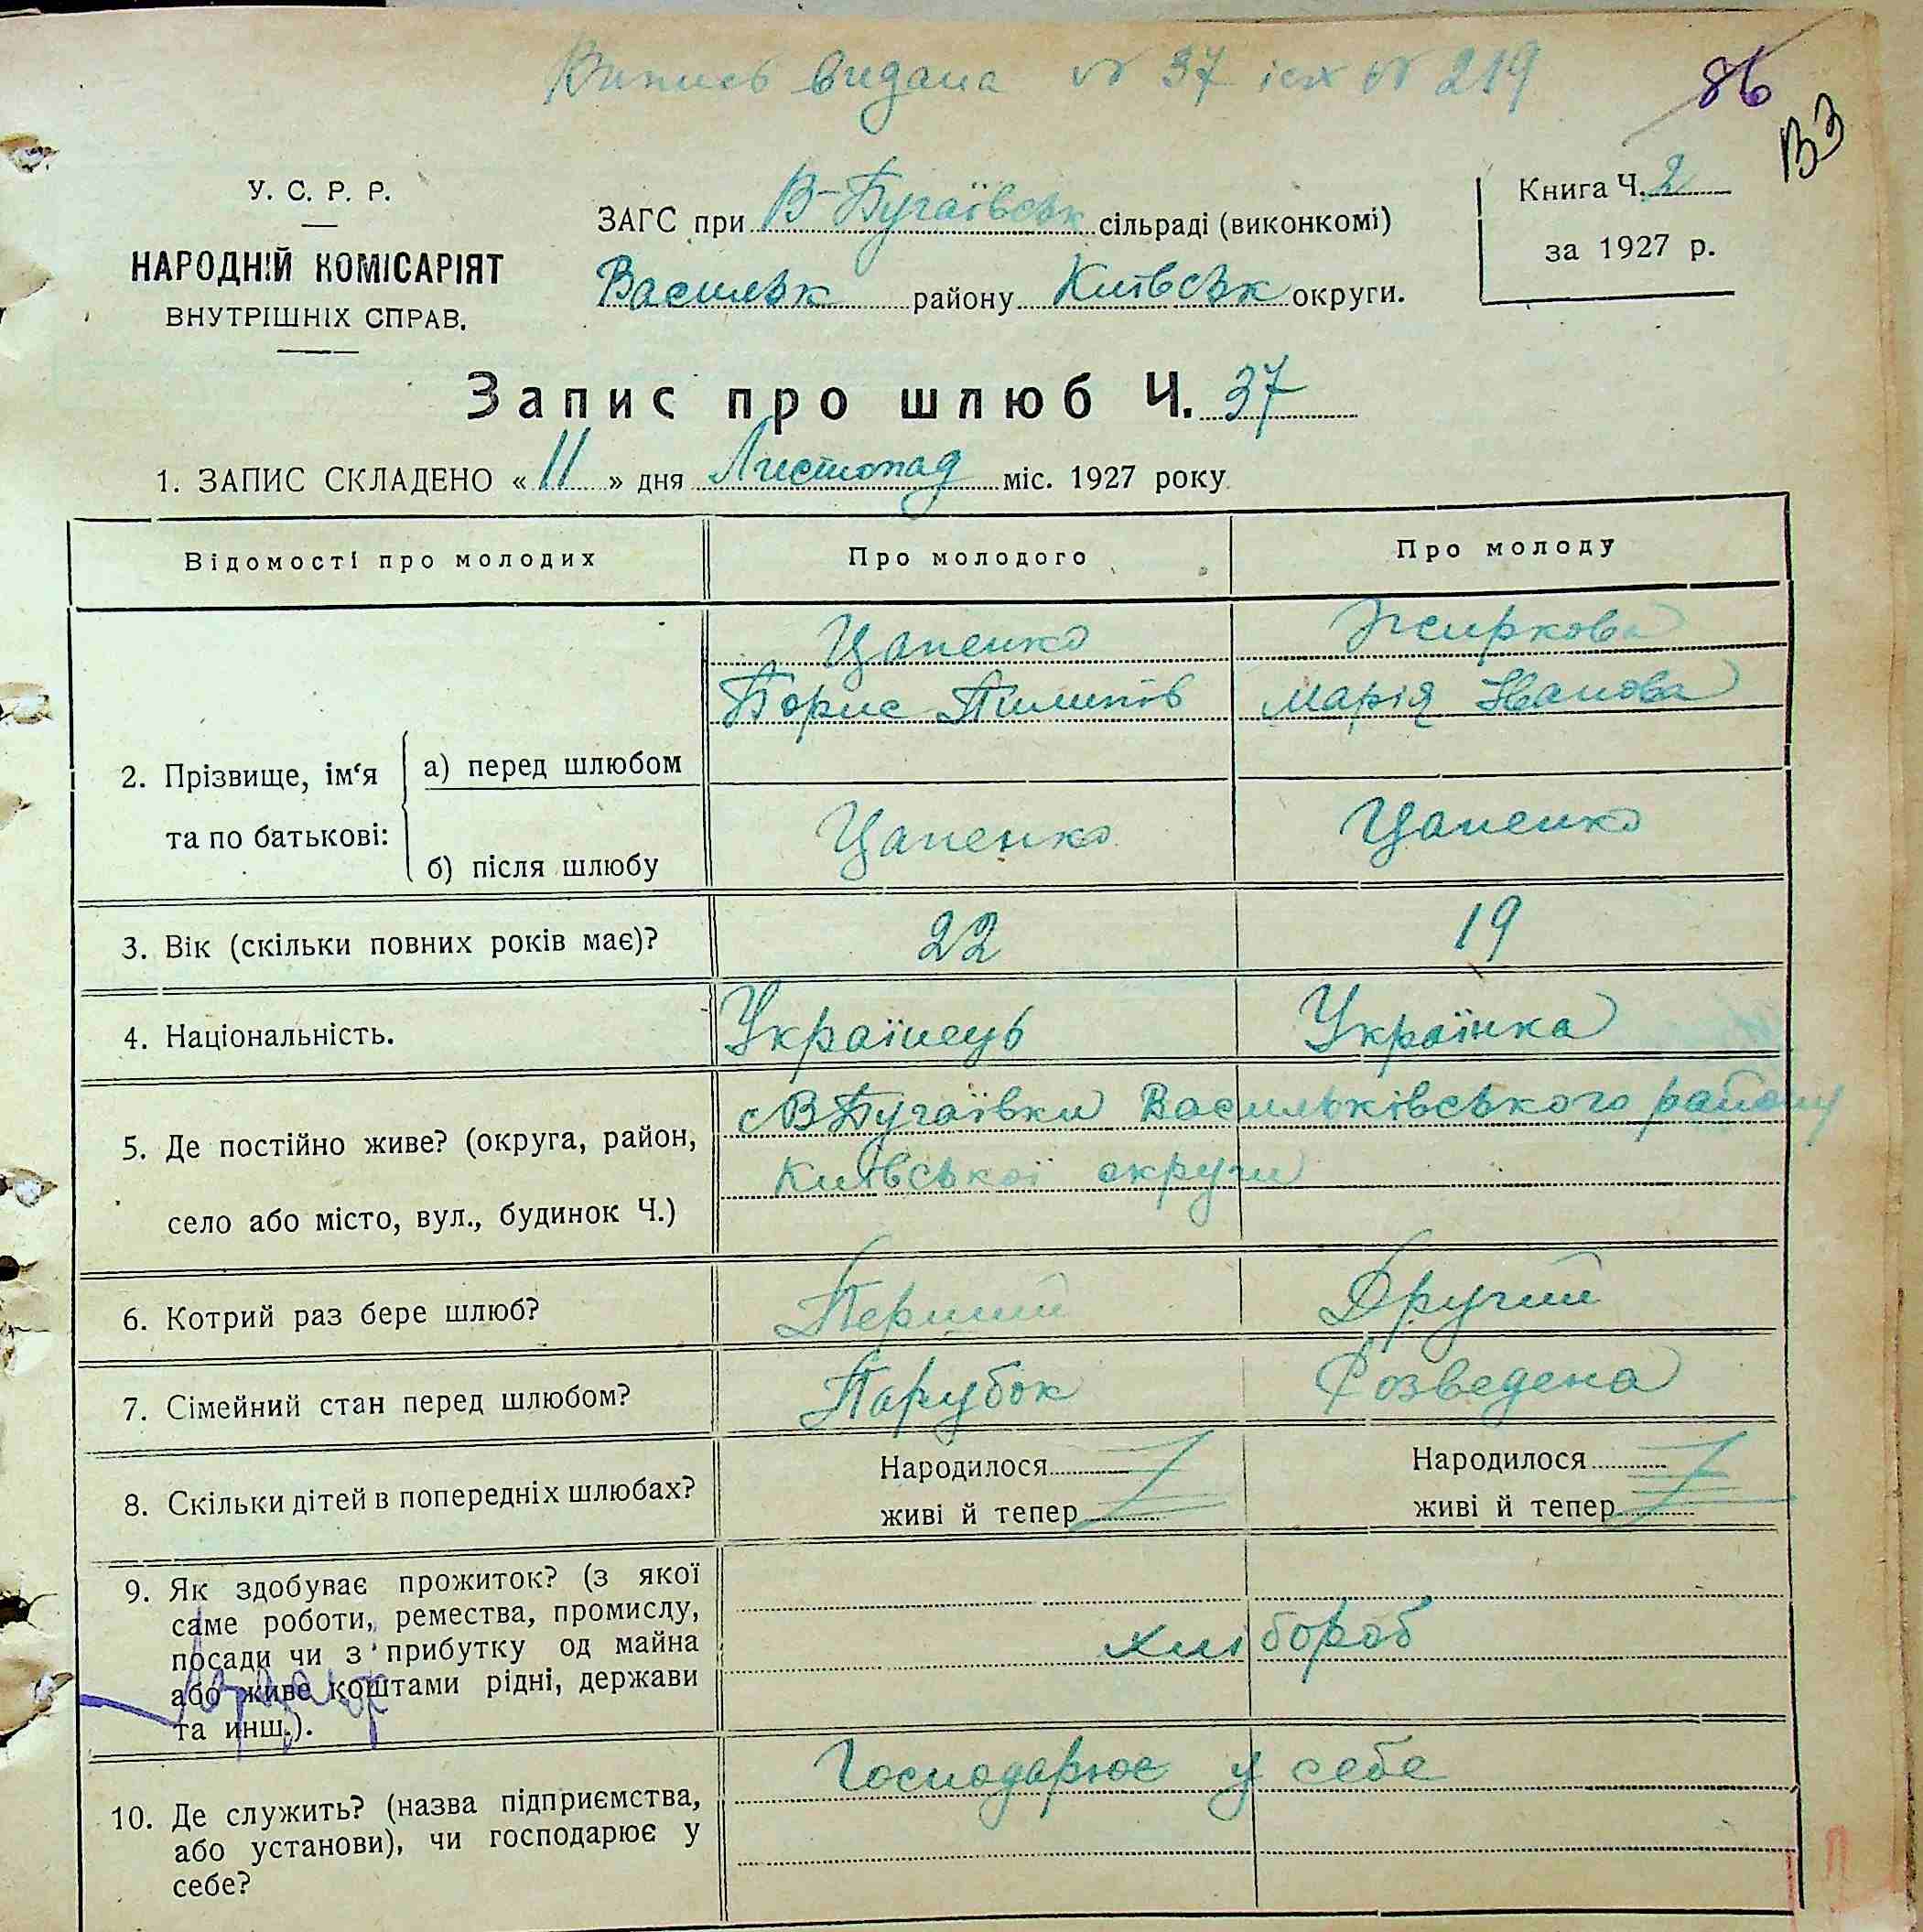 Випись видана № 37 ісх № 219
86
ВЗ
У. С. Р. Р.
НАРОДНІЙ КОМІСАРІЯТ
ВНУТРІШНІХ СПРАВ.
ЗАГС при В-Бугаївськ сільраді (виконкомі)
Васильк району Київськ округи.
Книга Ч. 2
за 1927 р.
Запис про шлюб Ч. 37
1. ЗАПИС СКЛАДЕНО « 11 » дня Листопад міс. 1927 року
Відомості про молодих Про молодого Про молоду
2. Прізвище, ім‘я та по батькові:
а) перед шлюбом
Цапенко Жиркова
Борис Пилипів Марія Іванова
б) після шлюбу
Цапенко Цапенко
3. Вік (скільки повних років має)? 22 19
4. Національність. Українець Українка
5. Де постійно живе? (округа, район,
село або місто, вул., будинок Ч.)
с В Бугаївки Васильківського району
Київської округи
6. Котрий раз бере шлюб? Перший Другий
7. Сімейний стан перед шлюбом? Парубок Розведена
8. Скільки дітей в попередніх шлюбах?
Народилося Народилося
живі й тепер живі й тепер
9. Як здобуває прожиток? (з якої
саме роботи, ремества, промислу,
посади чи з прибутку од майна
або живе коштами рідні, держави
та инш.).
хлібороб
10. Де служить? (назва підприємства,
або установи), чи господарює у
себе?
Господарює у себе